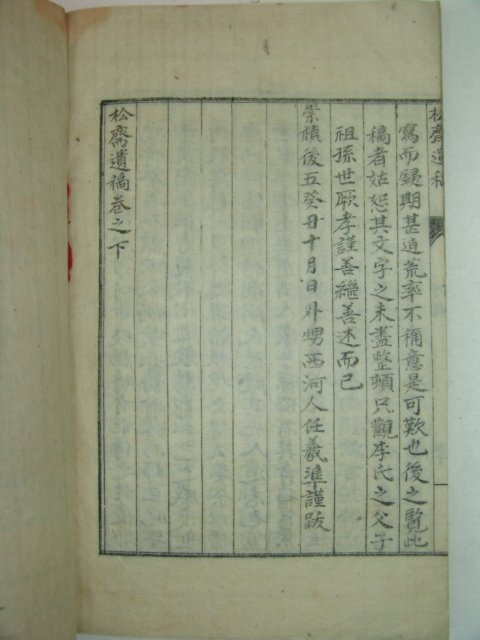 松齋遺稿
寫而錄期甚逌荒率不稱意是可歎也後之覽此
稿者姑恕其文字之未盡整頓只觀李氏之父子
祖孫世厥孝謹善繼善述而已
崇禎後五癸丑十月日外甥西河人任羲準謹跋
松齋遺稿卷之下